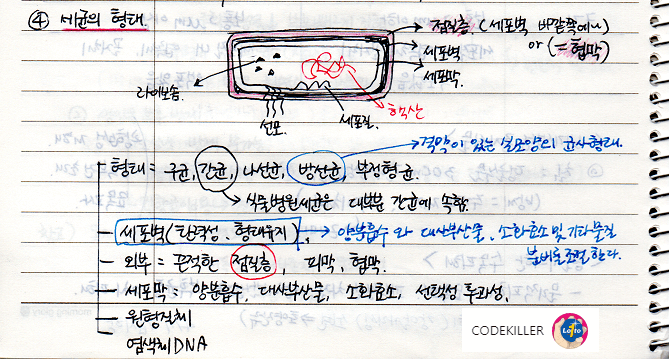 ④ 세균의 형태.
점질층 (세포벽 바깥쪽에)
or (= 협막)
세포벽
세포막.
라이보솜.
핵산
선모.
세포질.
격막이 있는 실모양의 균사형태.
형태 = 구균, 간균, 나선균, 방선균, 부정형균.
식물병원세균은 대부분 간균에 속함.
세포벽 (탄력성, 형태유지) 양분흡수와 대사부산물, 소화효소 및 기타물질
분비를 조절한다.
외부 = 끈적한 점질층, 피막, 협막.
세포막 = 양분흡수, 대사부산물, 소화효소, 선택성 투과성,
원형질체
염색체 DNA
CODEKILLER Lofto